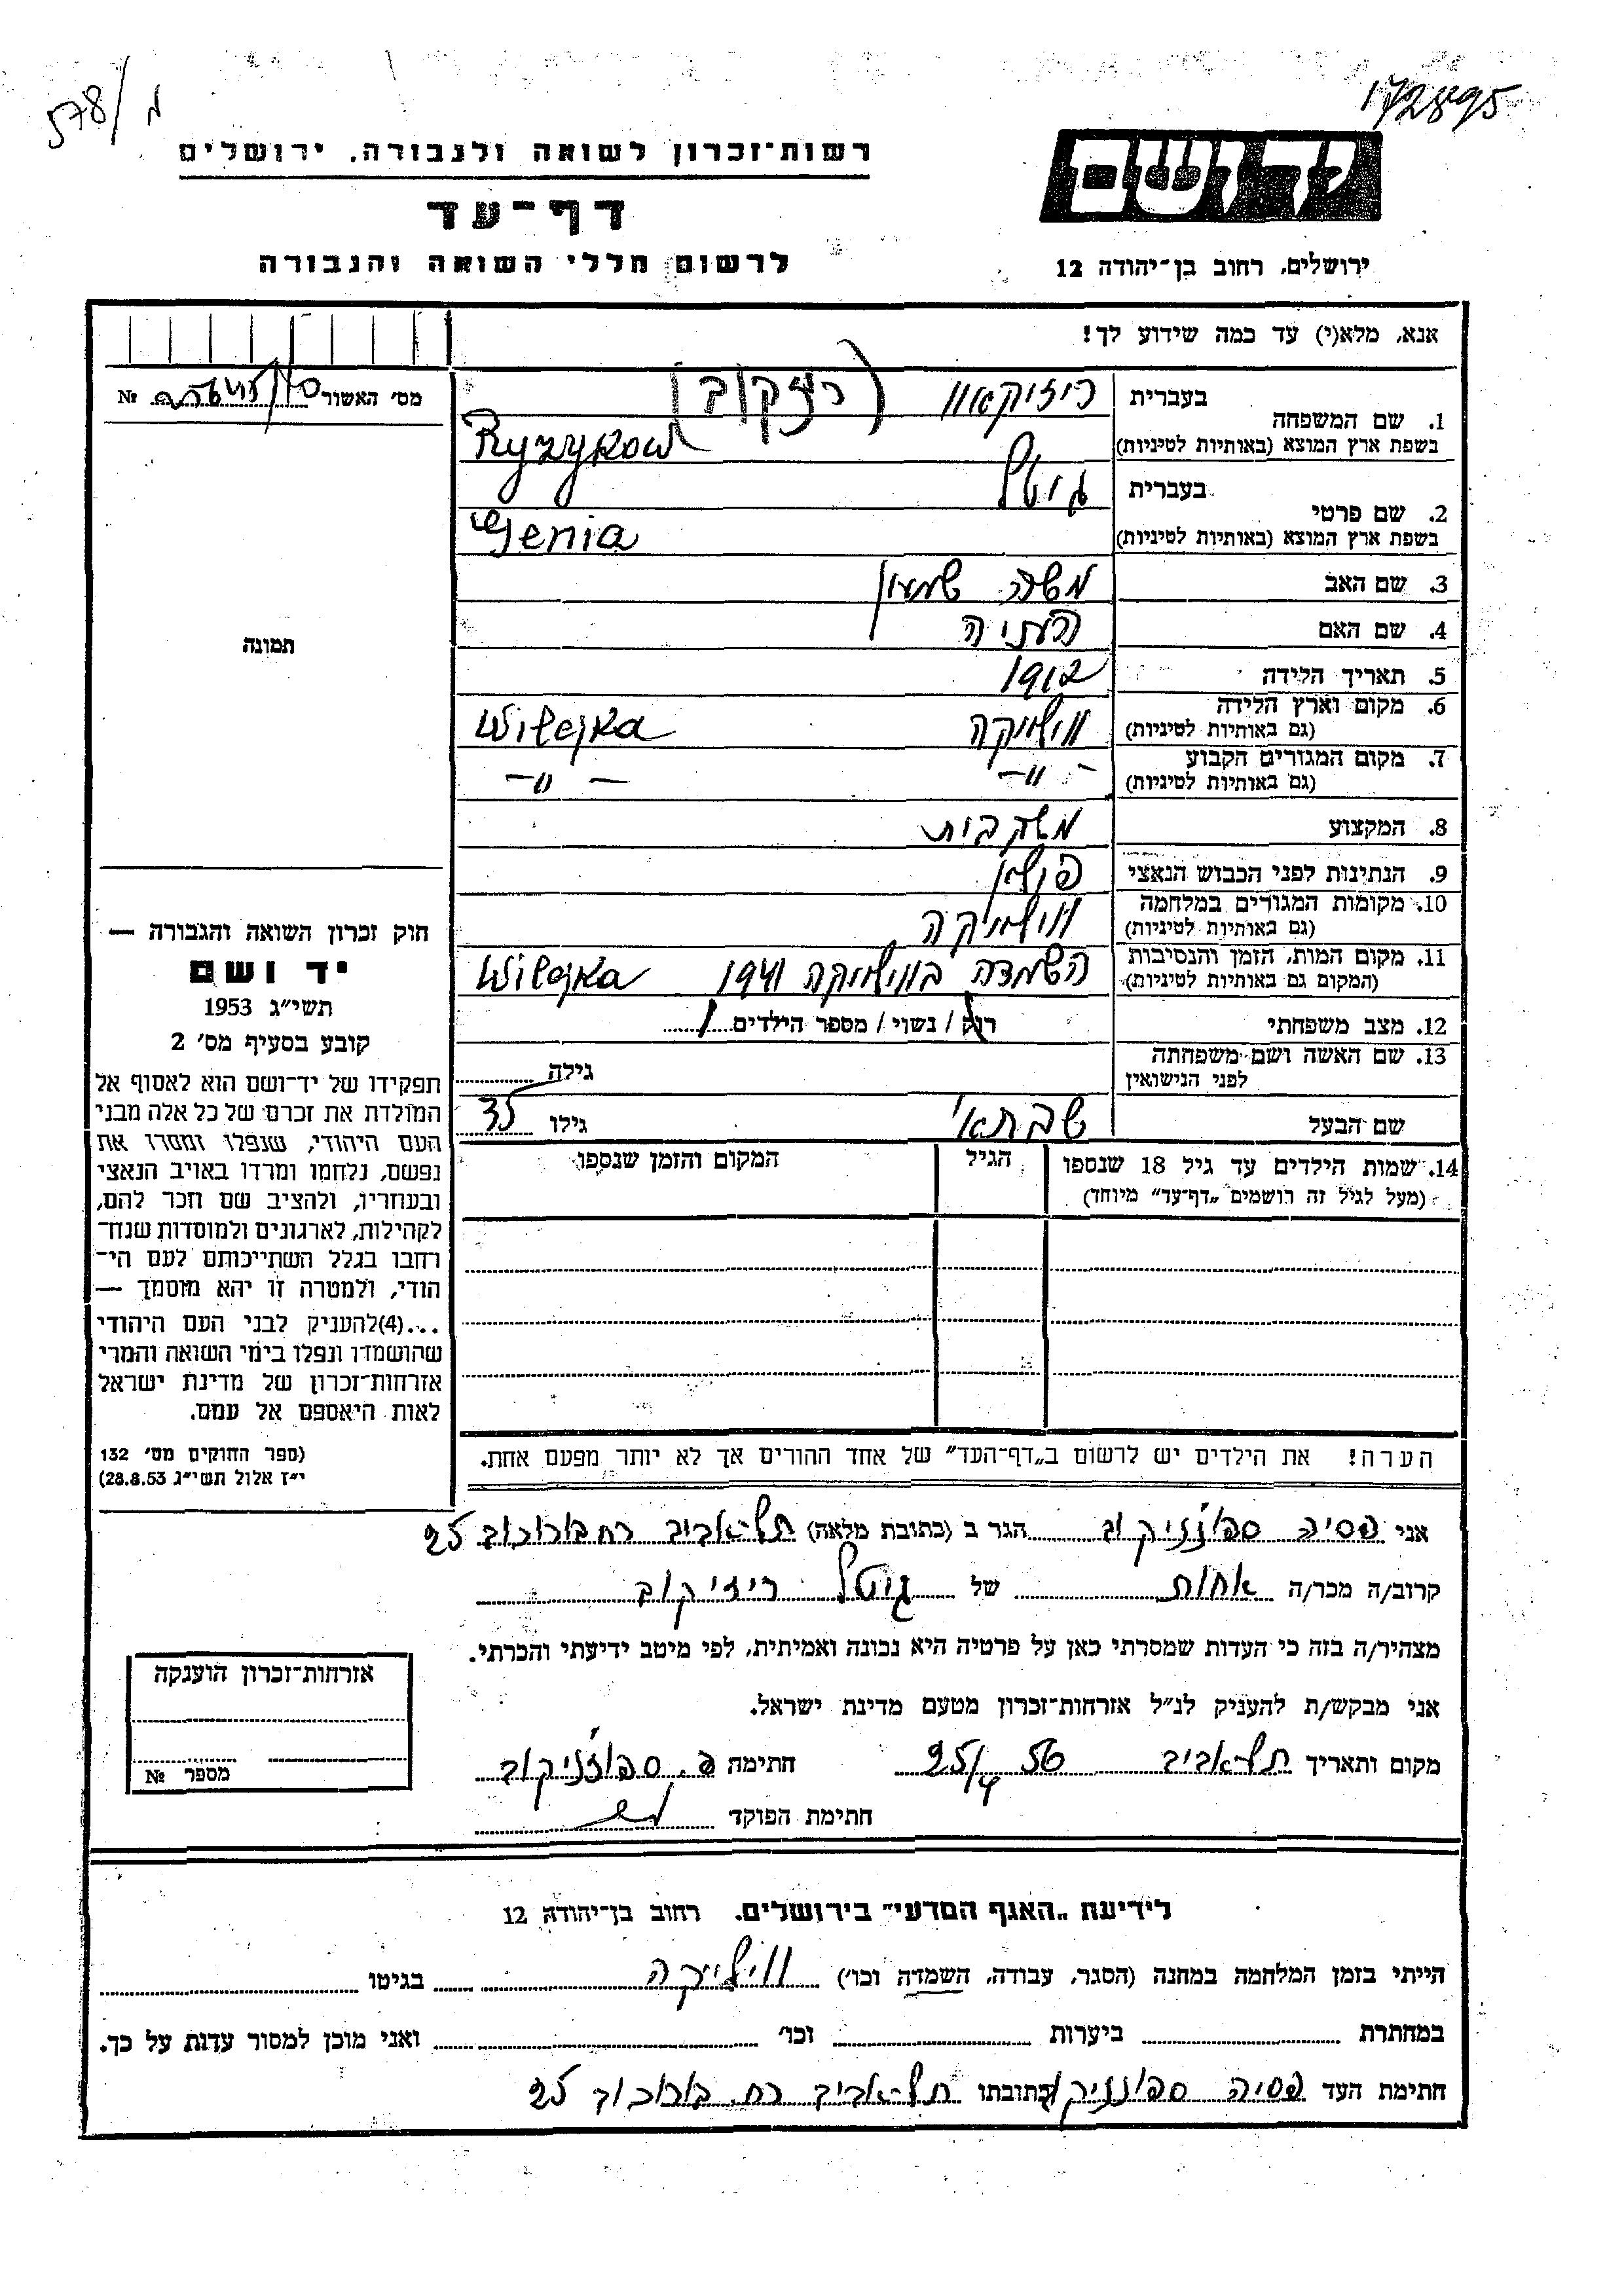 578/מ
172895
רשות-זכרון לשואה ולגבורה. ירושלים
יד ושם
דף-עד
לרשום חללי השואה והגבורה
ירושלים, רחוב בן-יהודה 12
אנא, מלא(י) עד כמה שידוע לך!
מס׳ האשור № 
1. שם המשפחה בעברית ריזיקאוו (ריזקוב)
בשפת ארץ המוצא (באותיות לטיניות) Ryzykow
2. שם פרטי בעברית גיטל
בשפת ארץ המוצא (באותיות לטיניות) Genia
3. שם האב משה שמעון
4. שם האם
5. תאריך הלידה 1912
6. מקום וארץ הלידה (גם באותיות לטיניות) ווילייקה Wilejka
7. מקום המגורים הקבוע (גם באותיות לטיניות) -"- -"-
8. המקצוע משק בית
9. הנתינות לפני הכבוש הנאצי פולין
10. מקומות המגורים במלחמה (גם באותיות לטיניות) ווילייקה
11. מקום המות, הזמן והנסיבות (המקום גם באותיות לטיניות) השמדה בווילייקה 1941 Wilejka
12. מצב משפחתי רוק / נשוי / מספר הילדים 1
13. שם האשה ושם משפחתה לפני הנישואין גילה
שם הבעל שבתאי גילו 35
14. שמות הילדים עד גיל 18 שנספו הגיל המקום והזמן שנספו
(מעל לגיל זה רושמים „דף-עד" מיוחד)
הערה! את הילדים יש לרשום ב„דף-העד" של אחד ההורים אך לא יותר מפעם אחת.
תמונה
חוק זכרון השואה והגבורה —
יד ושם
תשי״ג 1953
קובע בסעיף מס׳ 2
תפקידו של יד-ושם הוא לאסוף אל
המולדת את זכרם של כל אלה מבני
העם היהודי, שנפלו ומסרו את
נפשם, נלחמו ומרדו באויב הנאצי
ובעוזריו, ולהציב שם וזכר להם,
לקהילות, לארגונים ולמוסדות שנח-
רבו בגלל השתייכותם לעם הי-
הודי, ולמטרה זו יהא מוסמך —
...(4) להעניק לבני העם היהודי
שהושמדו ונפלו בימי השואה והמרי
אזרחות-זכרון של מדינת ישראל
לאות היאספם אל עמם.
(ספר החוקים מס׳ 132
י״ז אלול תשי״ג 28.8.53)
אני פסיה ספוז'ניקוב הגר ב (כתובת מלאה) תל-אביב רח בורוכוב 25
קרוב/ה מכר/ה אחות של גיטל ריזיקוב
מצהיר/ה בזה כי העדות שמסרתי כאן על פרטיה היא נכונה ואמיתית, לפי מיטב ידיעתי והכרתי.
אני מבקש/ת להעניק לנ״ל אזרחות-זכרון מטעם מדינת ישראל.
מקום ותאריך תל-אביב 25/4 56 חתימה פ. ספוז'ניקוב
חתימת הפוקד
אזרחות-זכרון הוענקה
מספר №
לידיעת „האגף המדעי" בירושלים. רחוב בן-יהודה 12
הייתי בזמן המלחמה במחנה (הסגר, עבודה, השמדה וכו׳) ווילייקה בגיטו
במחתרת ביערות וכו׳ ואני מוכן למסור עדות על כך.
חתימת העד פסיה ספוזניקוב כתובתו תל-אביב רח. בורוכוב 25